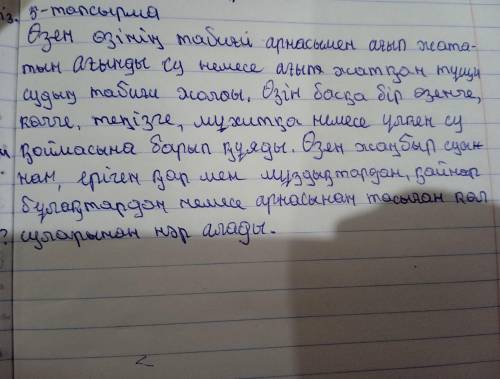 із. 5-тапсырма
Өзен өзінің табиғи арнасымен ағып жата-
тын ағынды су немесе ағып жатқан тұщы
судың табиғи жолы. Өзін басқа бір өзенге,
көлге, теңізге, мұхитқа немесе үлкен су
қоймасына барып құяды. Өзен жаңбыр суы-
нан, еріген қар мен мұздықтардан, қайнар
бұлақтардан немесе арнасынан тасыған көл
? суларынан нәр алады.